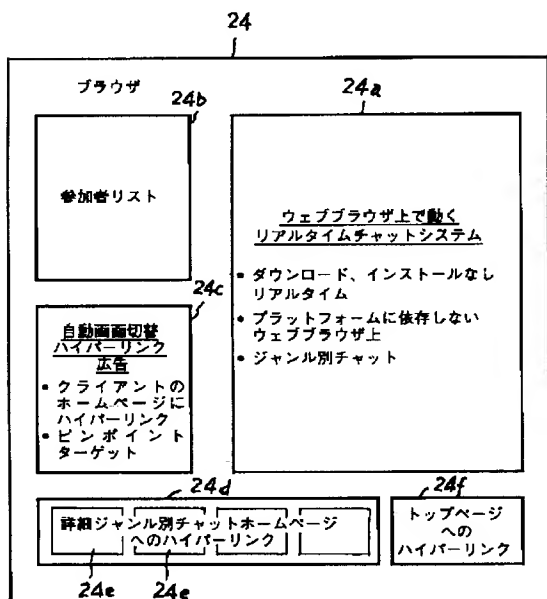 24
ブラウザ
24b
24a
参加者リスト
ウェブブラウザ上で動く
リアルタイムチャットシステム
• ダウンロード、インストールなし
リアルタイム
• プラットフォームに依存しない
ウェブブラウザ上
• ジャンル別チャット
24c
自動画面切替
ハイパーリンク
広告
• クライアントの
ホームページに
ハイパーリンク
• ピンポイント
ターゲット
24d
詳細ジャンル別チャットホームページ
へのハイパーリンク
24e
24e
24f
トップページ
への
ハイパーリンク